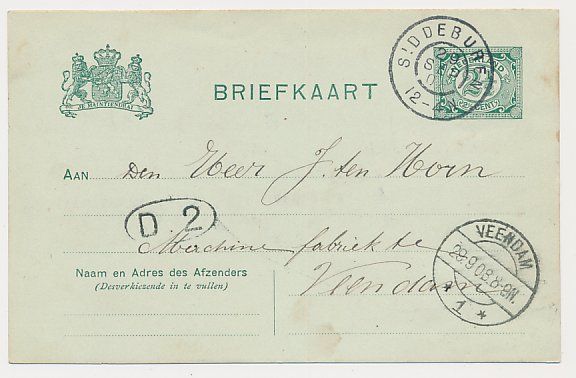 JE MAINTIENDRAI
BRIEFKAART
SIDDEBUREN
12-4N
AAN Den Heer J. ten Horn
D 2
Machine fabriek te
Veendam
VEENDAM
28.9.08.8-9N.
1 *
Naam en Adres des Afzenders
(Desverkiezende in te vullen)